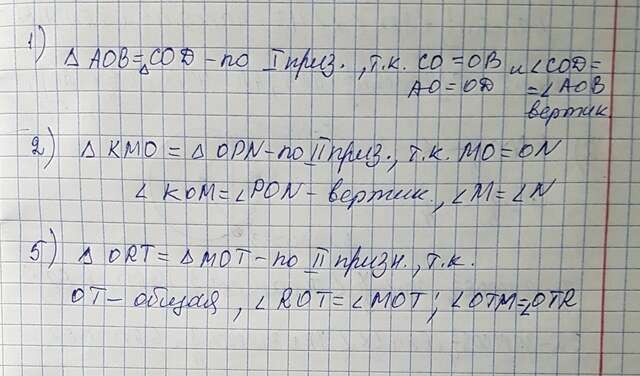 1) Δ AOB = Δ COD - по I призн., т.к. CO = OB и ∠COD =
AO = OD = ∠AOB
вертик
2) Δ KMO = Δ OPN - по II призн., т.к. MO = ON
∠ KOM = ∠PON - вертик., ∠M = ∠N
5) Δ ORT = Δ MOT - по II призн., т.к.
OT - общая, ∠ROT = ∠MOT; ∠OTM = ∠OTR